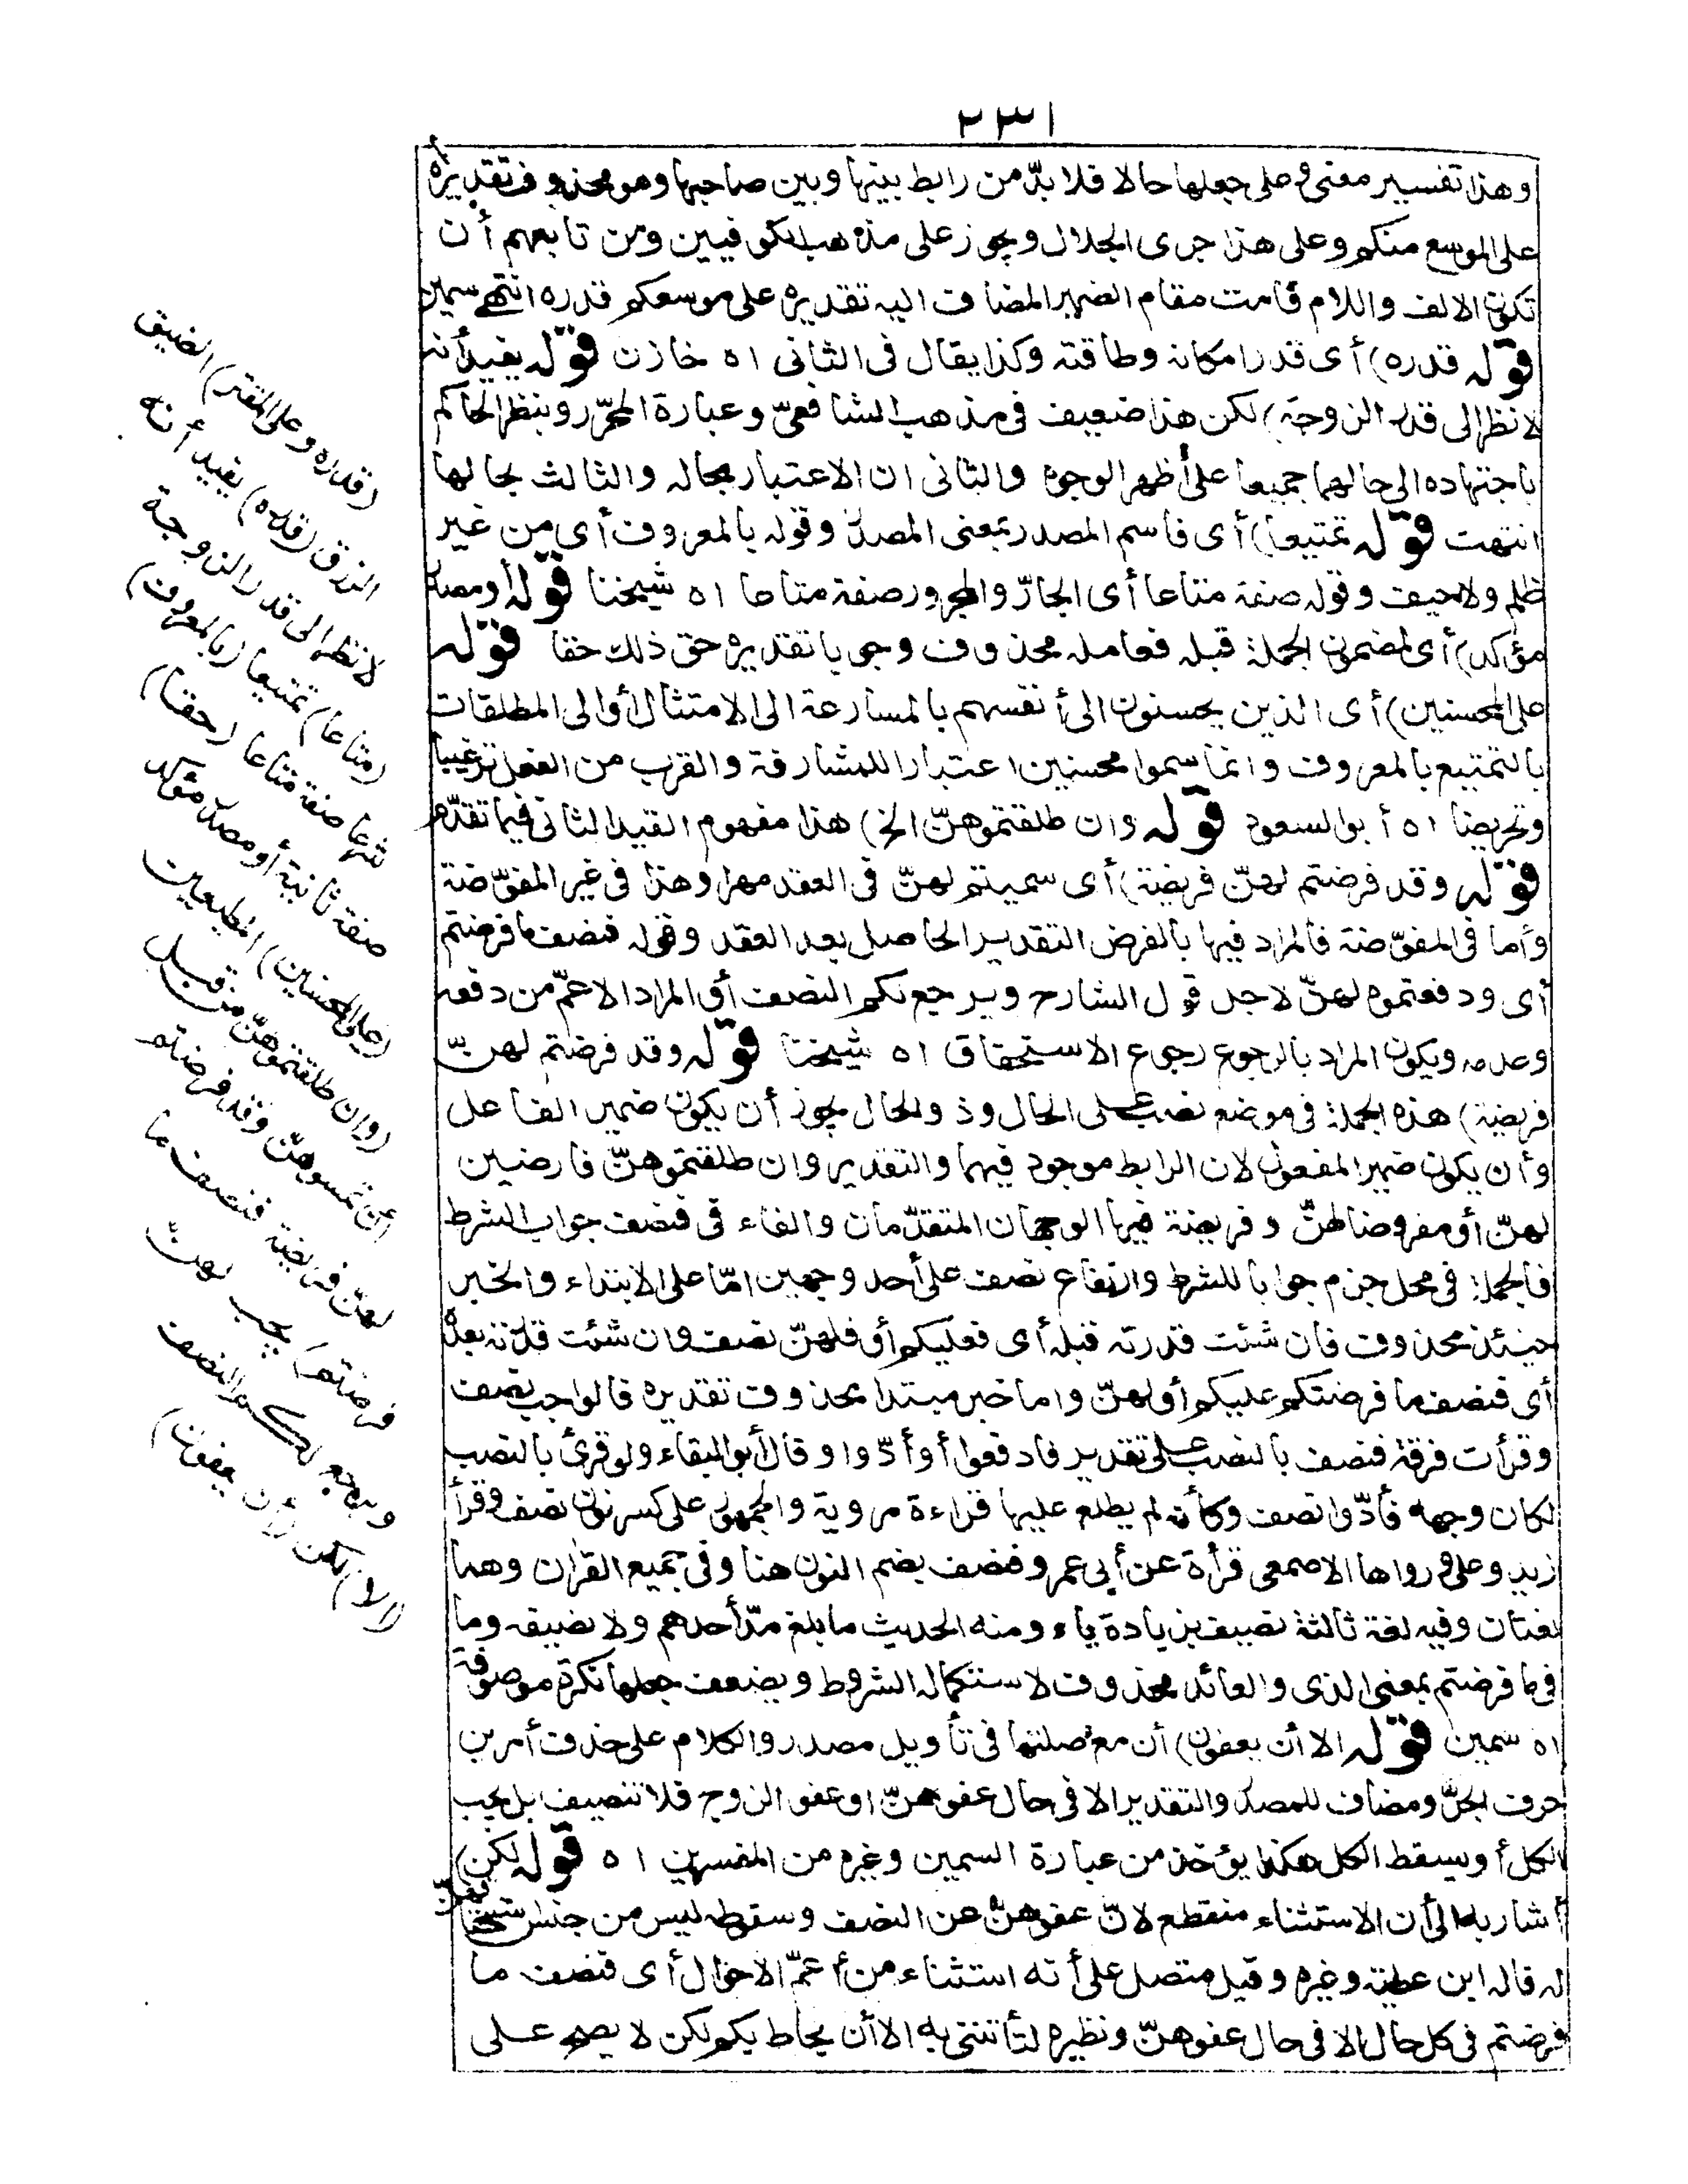 ٢٣١
وهذا تفسير معنى وعلى جعلها حالا فلا بدّ من رابط بينها وبين صاحبها وهو محذوف تقديره
على الموسع منكم وعلى هذا جرى الجلال ويجوز على مذهب الكوفيين ومن تابعهم أن
تكون الالف واللام قامت مقام الضمير المضاف اليه تقديره على موسعكم قدره انتهى سمين
قوله قدره) أى قدر امكانه وطاقته وكذا يقال فى الثانى اه خازن قوله يفيد أنه
لا نظر الى قدر الزوجة) لكن هذا ضعيف فى مذهب الشافعىّ وعبارة المحرّر وينظر الحاكم
باجتهاده الى حالهما جميعا على أظهر الوجوه والثانى ان الاعتبار بحاله والثالث بحالها
انتهت قوله تمتيعا) أى فاسم المصدر بمعنى المصدر وقوله بالمعروف أى من غير
ظلم ولا حيف وقوله صفة متاعا أى الجارّ والمجرور صفة متاعا اه شيخنا قوله أو مصدر
مؤكد) أى لمضمون الجملة قبله فعامله محذوف وجوبا تقديره حق ذلك حقا قوله
على المحسنين) أى الذين يحسنون الى أنفسهم بالمسارعة الى الامتثال أو الى المطلقات
بالتمتيع بالمعروف وانما سموا محسنين اعتبارا للمشارفة والقرب من الفعل ترغيبا
وتحريضا اه أبو السعود قوله وان طلقتموهنّ الخ) هذا مفهوم القيد الثانى فيما تقدّم
قوله وقد فرضتم لهنّ فريضة) أى سميتم لهنّ فى العقد مهرا وهذا فى غير المفوّضة
وأما فى المفوّضة فالمراد فيها بالفرض التقدير الحاصل بعد العقد وقوله فنصف ما فرضتم
أى ودفعتموه لهنّ لاجل قول الشارح ويرجع لكم النصف أو المراد الاعمّ من دفعه
وعدمه ويكون المراد بالرجوع رجوع الاستحقاق اه شيخنا قوله وقد فرضتم لهنّ
فريضة) هذه الجملة فى موضع نصب على الحال وذو الحال يجوز أن يكون ضمير الفاعل
وأن يكون ضمير المفعول لان الرابط موجود فيهما والتقدير وان طلقتموهنّ فارضين
لهنّ أو مفروضا لهنّ وفريضة فيها الوجهان المتقدّمان والفاء فى فنصف جواب الشرط
فالجملة فى محل جزم جوابا للشرط وارتفاع نصف على أحد وجهين امّا على الابتداء والخبر
حينئذ محذوف فان شئت قدرته قبله أى فعليكم أو فلهنّ نصف وان شئت قدّرته بعده
أى فنصف ما فرضتكم عليكم أو لهنّ واما خبر مبتدا محذوف تقديره فالواجب نصف
وقرأت فرقة فنصف بالنصب على تقدير فادفعوا أو أدّوا وقال أبو البقاء ولو قرئ بالنصب
لكان وجهه فأدّوا نصف وكأنه لم يطلع عليها قراءة مروية والجمهور على كسر نون نصف وقرأ
زيد وعلى ورواها الاصمعى قرأة عن أبى عمرو فنصف بضم النون هنا وفى جميع القرآن وهما
لغتان وفيه لغة ثالثة نصيف بزيادة ياء ومنه الحديث ما بلغ مدّ أحدهم ولا نصيفه وما
فى ما فرضتم بمعنى الذى والعائد محذوف لاستكماله الشروط ويضعف جعلها نكرة موصوفة
اه سمين قوله الا أن يعفون) أن مع صلتها فى تأويل مصدر والكلام على حذف أمرين
حرف الجرّ ومضاف للمصدر والتقدير الا فى حال عفوهنّ او عفو الزوج فلا تنصيف بل يجب
الكل أو يسقط الكل هكذا يؤخذ من عبارة السمين وغيره من المفسرين اه قوله لكن)
أشار به الى أن الاستثناء منقطع لانّ عفوهنّ عن النصف وسقوطه ليس من جنس استحقاقهنّ
له قاله ابن عطية وغيره وقيل متصل على أنه استثناء من أعمّ الاحوال أى فنصف ما
فرضتم فى كل حال الا فى حال عفوهنّ ونظيره لتأتننى به الا أن يحاط بكم لكن لا يصح على
(قدره وعلى المقتر) الضيق
الرزق (قدره) يفيد أنه
لا نظر الى قدر الزوجة
(متاعا) تمتيعا (بالمعروف)
شرعا صفة متاعا (حقا)
صفة ثانية أو مصدر مؤكد
(على المحسنين) المطيعين
(وان طلقتموهنّ من قبل
أن تمسوهنّ وقد فرضتم
لهنّ فريضة فنصف ما
فرضتم) يجب لهنّ
ويرجع لكم النصف
(الا) لكن (أن يعفون)